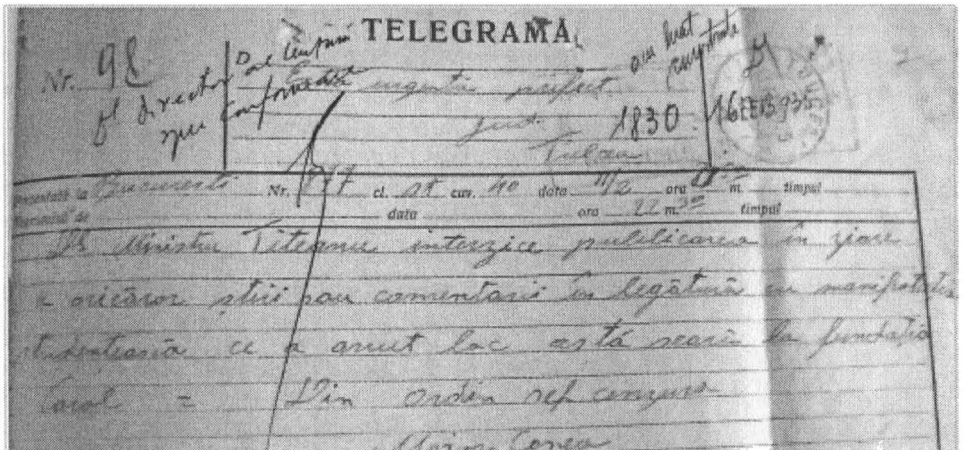 TELEGRAMĂ
Nr. 98
Dl. director al cenzurii
spre conformare
am luat
cunoștință
urgentă prefect
jud.
Tulcea
1830. 16 FEB 935
Prezentată la București Nr. 877 cl. cuv. 40 data 11/2 ora m. timpul
de data ora 22 m. 30 timpul
Dl Ministru Titeanu interzice publicarea în ziare
a oricăror știri sau comentarii în legătură cu manifestația
studențească ce a avut loc astă seară la fundația
Carol = Din ordin șef cenzura
Major